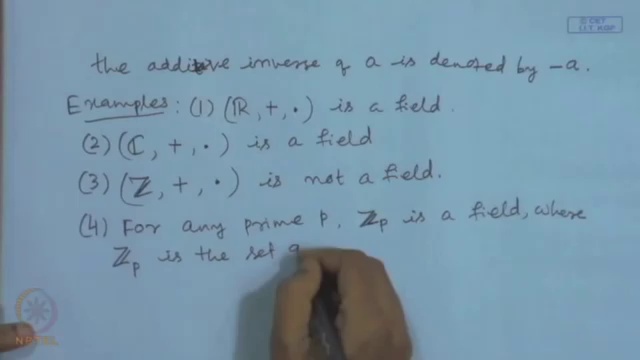 © CET
I.I.T. KGP
the additive inverse of a is denoted by -a.
Examples: (1) (ℝ, +, ·) is a field.
(2) (ℂ, +, ·) is a field
(3) (ℤ, +, ·) is not a field.
(4) For any prime p, ℤp is a field, where
ℤp is the set
NPTEL